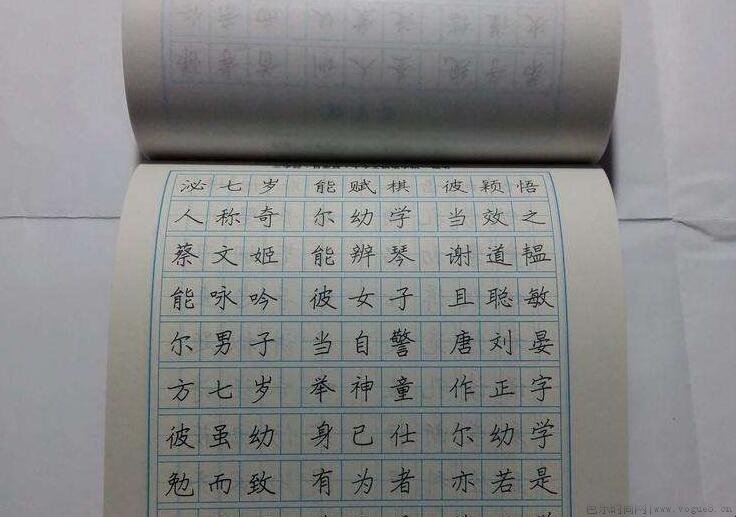 泌七岁 能赋棋 彼颖悟
人称奇 尔幼学 当效之
蔡文姬 能辨琴 谢道韫
能咏吟 彼女子 且聪敏
尔男子 当自警 唐刘晏
方七岁 举神童 作正字
彼虽幼 身已仕 尔幼学
勉而致 有为者 亦若是
www.vogue8.cn